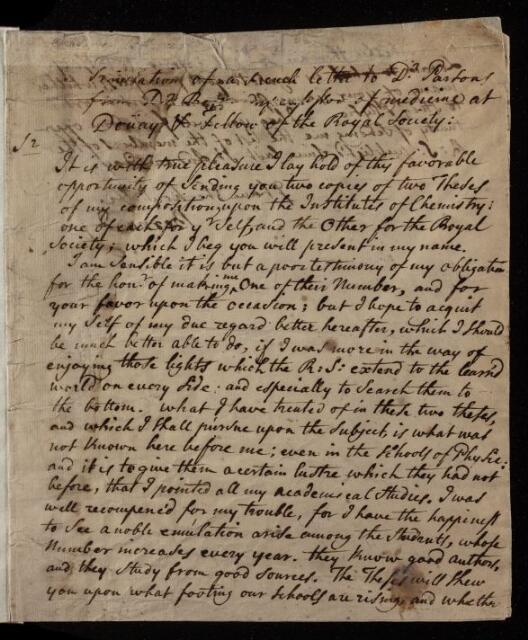 Translation of a French letter to Dr. Parsons
from Dr. professor of medicine at
Doüay & Fellow of the Royal Society:
Sr.
It is with true pleasure I lay hold of this favorable
opportunity of Sending you two copies of two Theses
of my composition upon the Institutes of Chemistry:
one of each for yr Self, and the Other for the Royal
Society; which I beg you will present in my name.
I am Sensible it is but a poor testimony of my obligation
for the honr. of making me One of their Number, and for
your favor upon the occasion; but I hope to acquit
my Self of my due regard better hereafter, which I should
be much better able to do, if I was more in the way of
enjoying those lights which the R: S: extend to the learned
world on every Side: and especially to Search them to
the bottom. what I have treated of in these two theses,
and which I shall pursue upon the Subject, is what was
not Known here before me; even in the Schools of Physic:
and it is to give them a certain lustre which they had not
before, that I pointed all my academical Studies. I was
well recompenc'd for my trouble, for I have the happiness
to See a noble emulation arise among the Students, whose
Number increases every year. they know good authors,
and they Study from good sources. The Theses will shew
you upon what footing our schools are rising, and whether